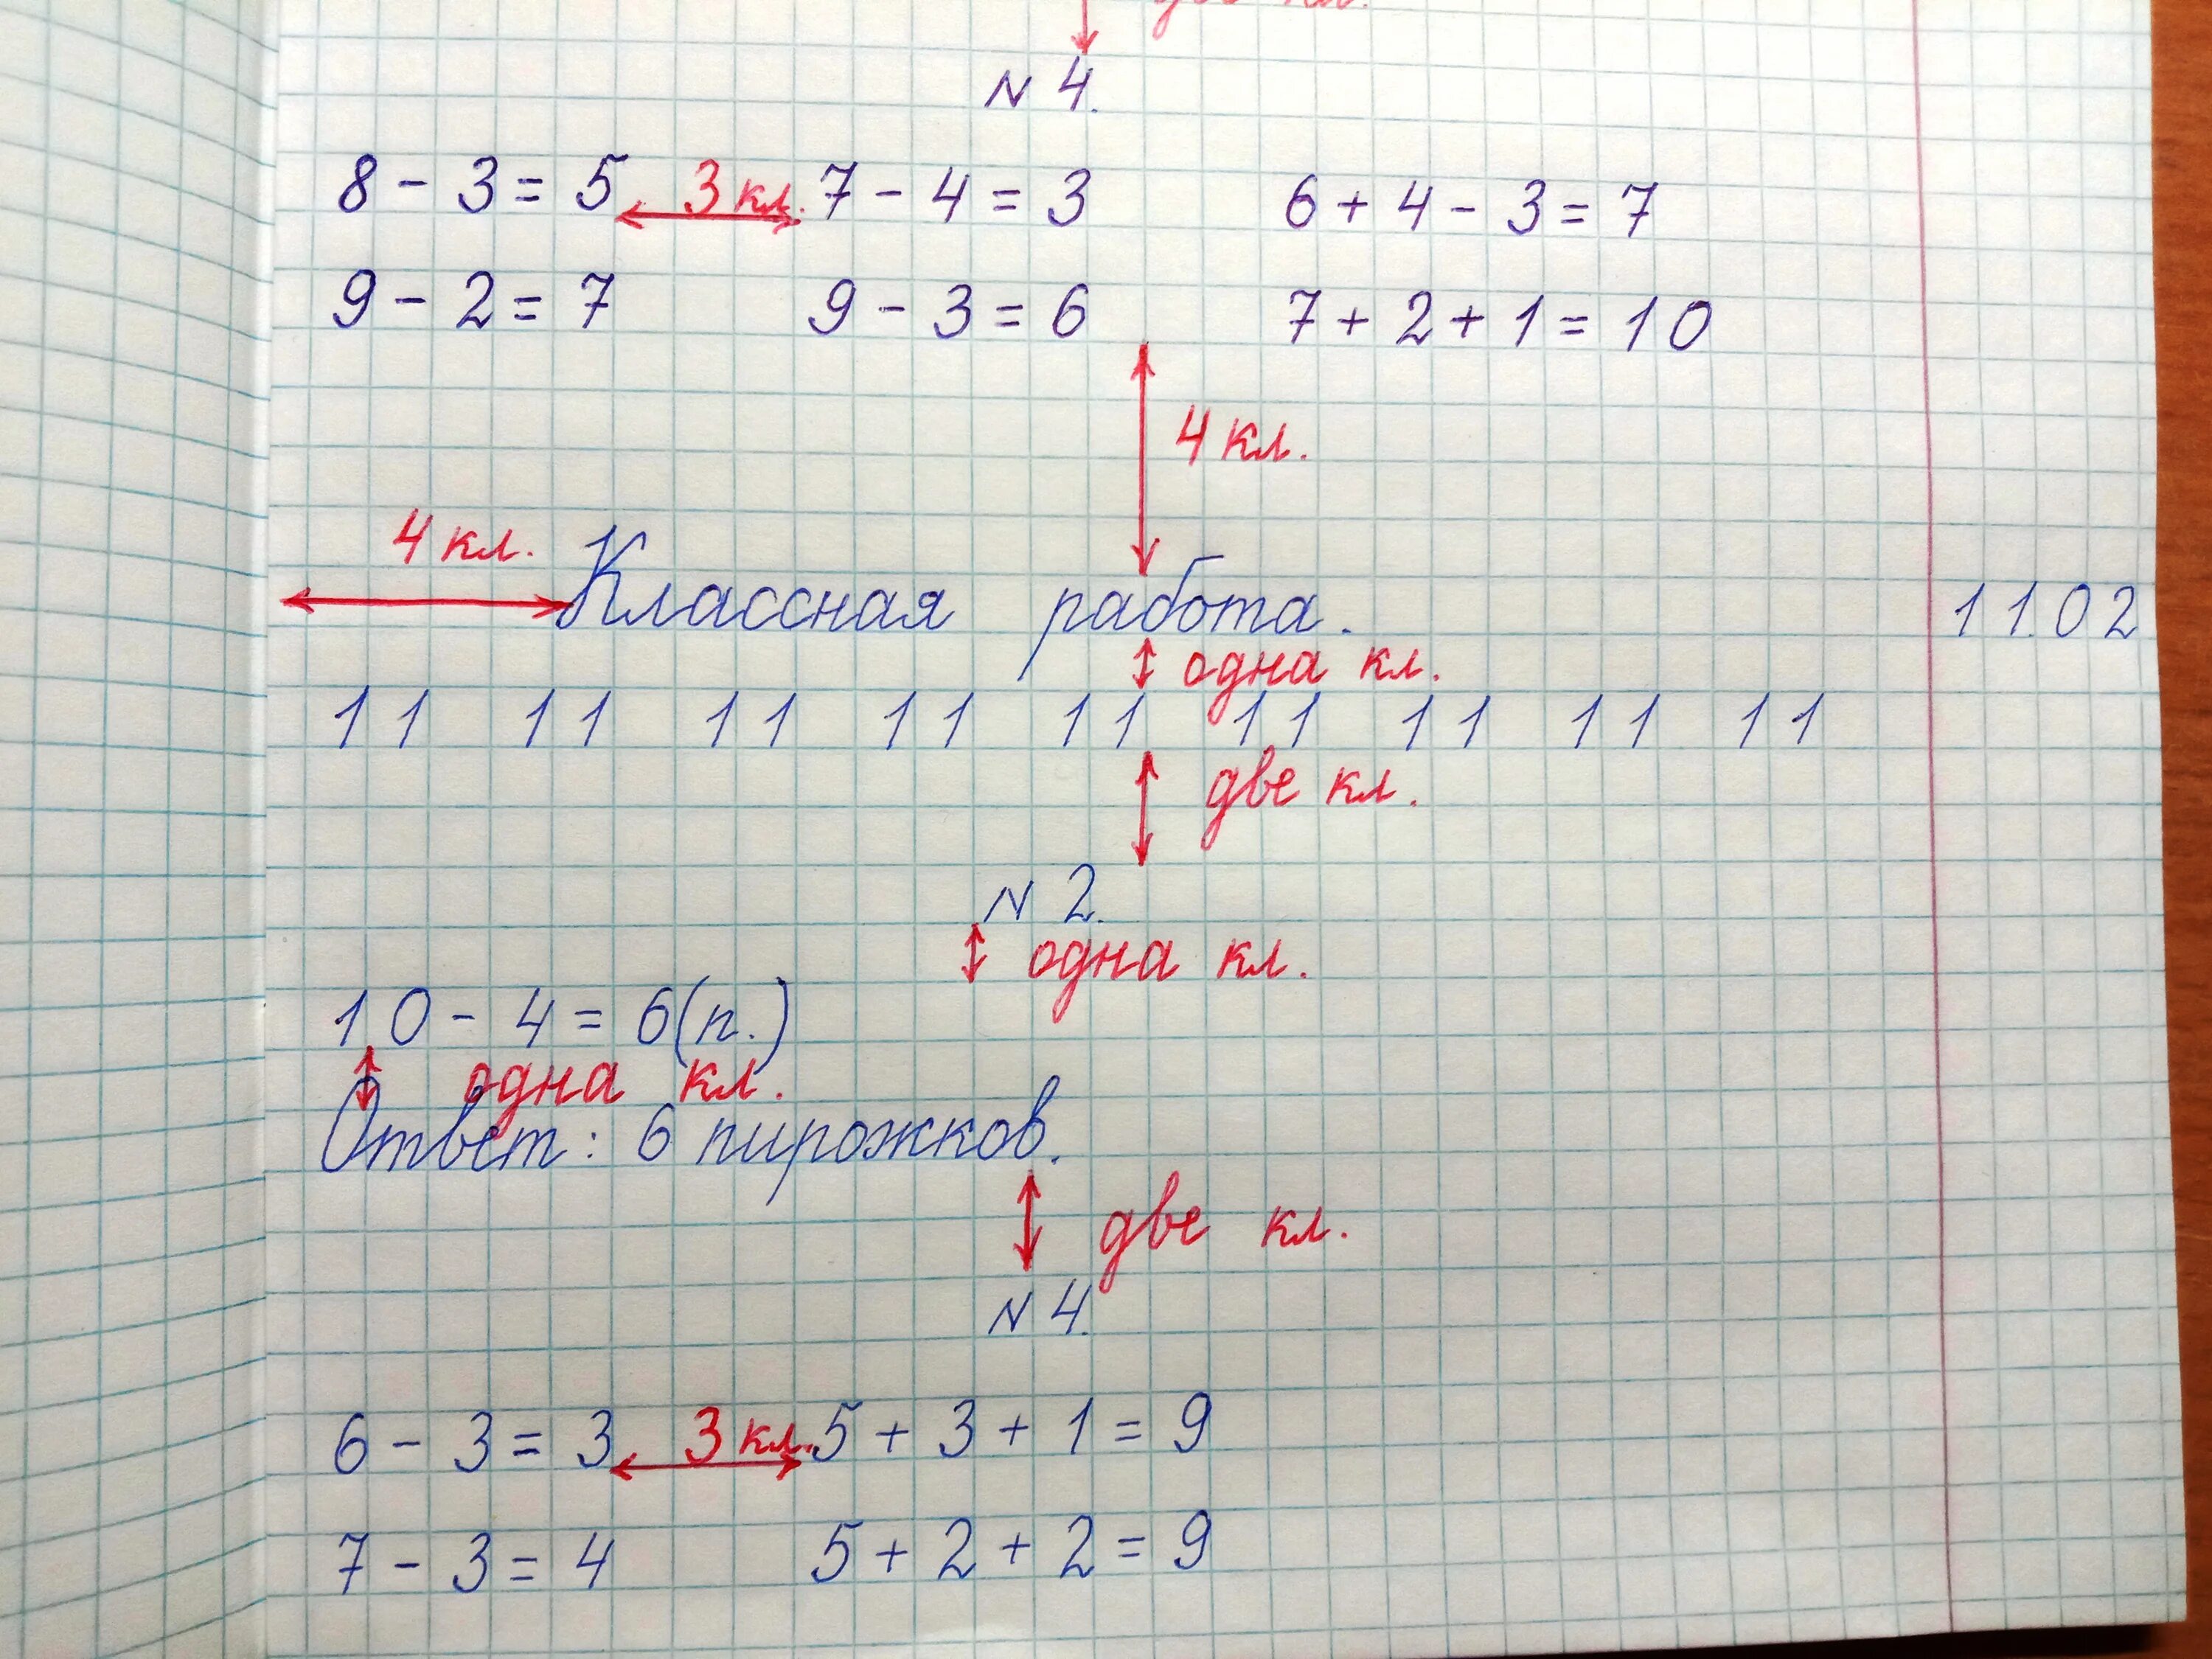 две кл.
N 4.
8 - 3 = 5 3 кл. 7 - 4 = 3 6 + 4 - 3 = 7
9 - 2 = 7 9 - 3 = 6 7 + 2 + 1 = 10
4 кл.
4 кл. Классная работа. 11.02
одна кл.
11 11 11 11 11 11 11 11 11
две кл.
N 2.
одна кл.
10 - 4 = 6 (п.)
одна кл.
Ответ: 6 пирожков.
две кл.
N 4.
6 - 3 = 3 3 кл. 5 + 3 + 1 = 9
7 - 3 = 4 5 + 2 + 2 = 9